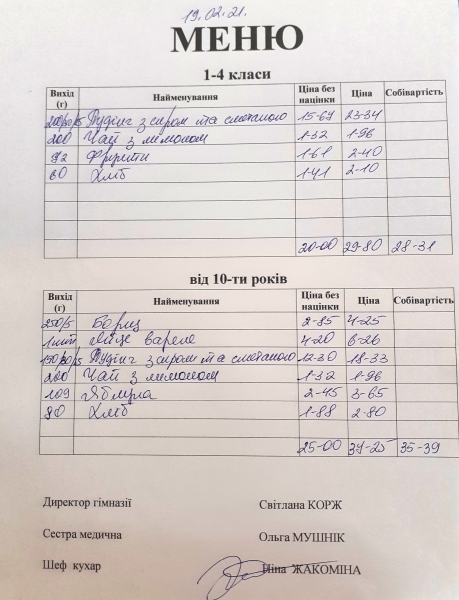 19.02.21.
МЕНЮ
1-4 класи
Вихід (г) Найменування Ціна без націнки Ціна Собівартість
200/30/5 Пудінг з сиром та сметаною 15-67 23-34
200 Чай з лимоном 1-32 1-96
92 Фрукти 1-61 2-40
60 Хліб 1-41 2-10
20-00 29-80 28-31
від 10-ти років
Вихід (г) Найменування Ціна без націнки Ціна Собівартість
250/5 Борщ 2-85 4-25
1шт Яйце варене 4-20 6-26
150/30/5 Пудінг з сиром та сметаною 12-30 18-33
200 Чай з лимоном 1-32 1-96
109 Яблука 2-45 3-65
80 Хліб 1-88 2-80
25-00 37-25 35-39
Директор гімназії Світлана КОРЖ
Сестра медична Ольга МУШНІК
Шеф кухар Ніна ЖАКОМІНА